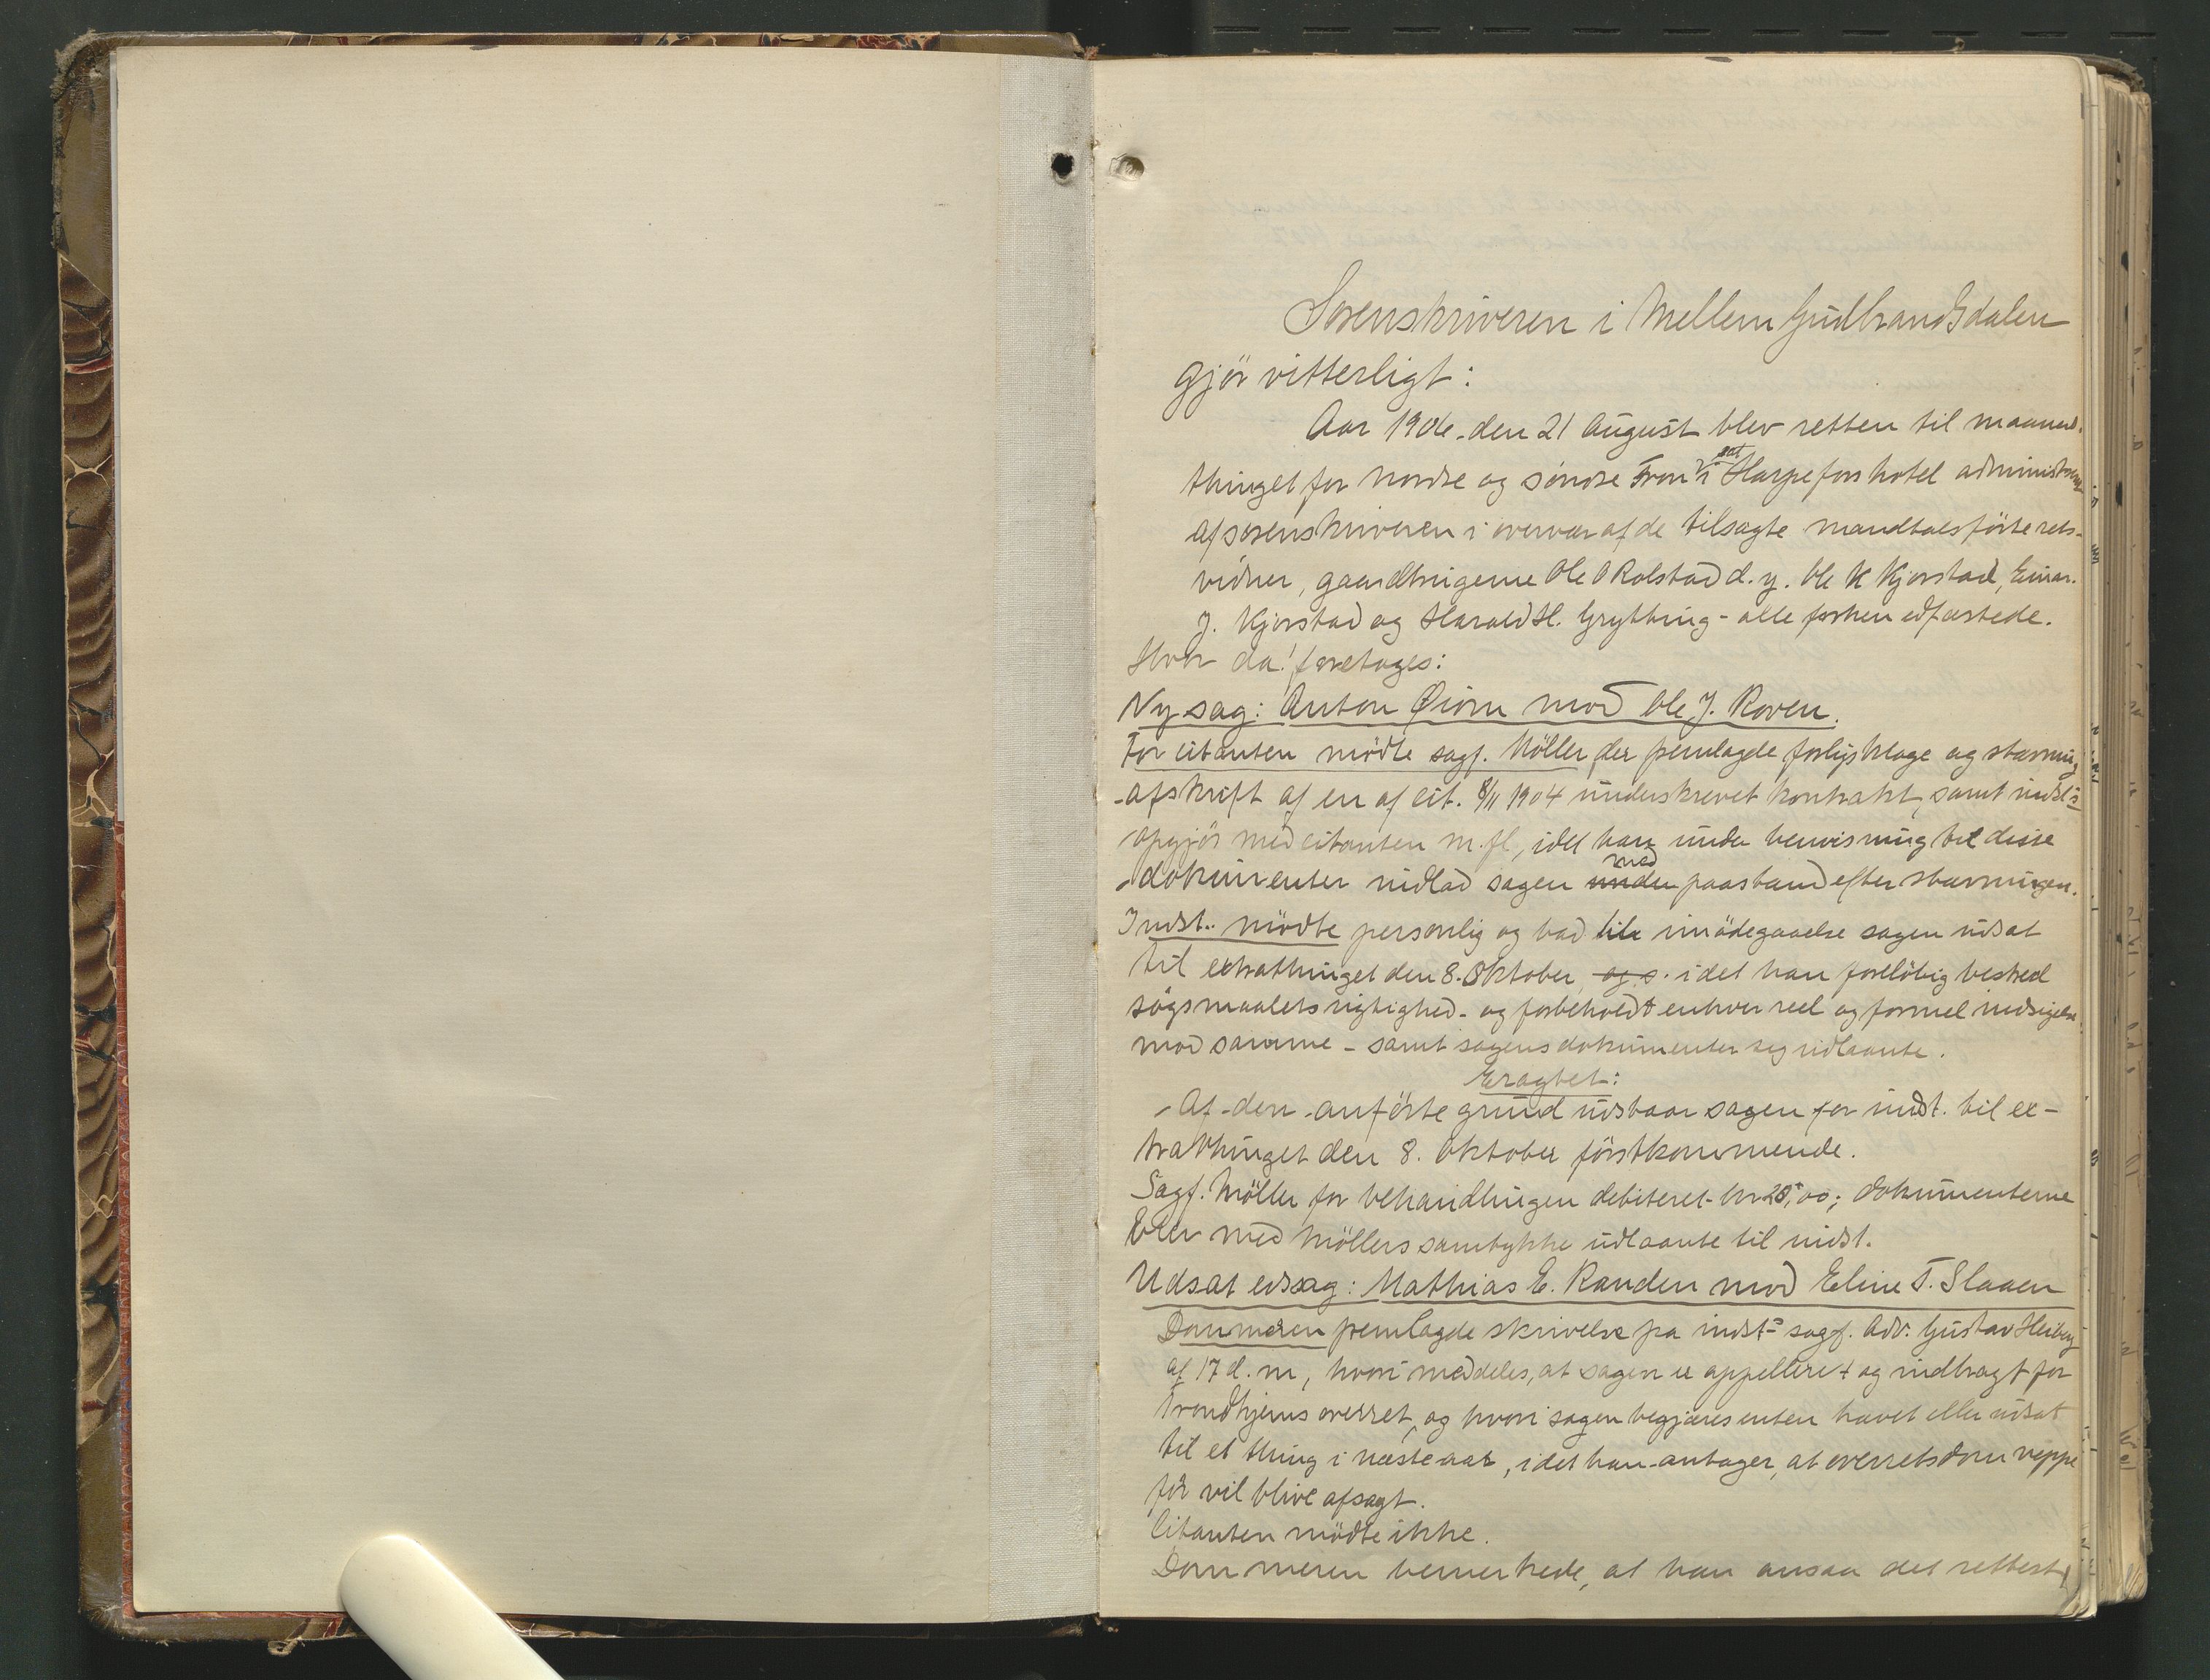 Sorenskriveren i Mellem Gudbrandsdalen
gjör vitterligt:
Aar 1906 den 21 August blev retten til maaneds-
thinget for nordre og söndre Fron sat i Harpefos hotel administreret
af sorenskriveren i overvær af de tilsagte mandtalsförte rets-
vidner, gaardbrugerne Ole O Rolstad d. y. Ole K Kjorstad, Einar
J. Kjorstad og Harald H. Grytting - alle forhen edfæstede.
Hvor da foretages:
Ny sag: Anton Øiom mod Ole J. Roven.
For citanten mödte sagf. Möller der fremlagde forligsklage og stævning
-afskrift af en af cit. 8/11 1904 underskrevet kontrakt, samt indst:s
opgjör med citanten m. fl, idet han under henvisning til disse
dokumenter indlod sagen med paastand efter stævningen.
Indst. mödte personlig og bad til imödegaaelse sagen udsat
til extrathinget den 8. Oktober, og s. idet han forelöbig bestred
sögsmaalets rigtighed - og forbeholdt enhver reel og formel indsigelse
mod samme - samt sagens dokumenter sig udlaante.
Eragtet:
Af den anförte grund udstaar sagen for indst. til ex-
trathinget den 8. Oktober förstkommende.
Sagf. Möller for behandlingen debiteret kr 25,00; dokumenterne
blev med Möllers samtykke udlaante til indst.
Udsat edsag: Mathias E. Randen mod Eline T. Slaaen
Dommeren fremlagde skrivelse fra indst:s sagf. Adv. Gustav Heiberg
af 17 d. m, hvori meddeles, at sagen er appelleret og indbragt for
Trondhjems overret, og hvori sagen begjæres enten hævet eller udsat
til et thing i næste aar, idet han antager, at overretsdom neppe
för vil blive afsagt.
Citanten mödte ikke.
Dommeren bemerkede, at han ansaa det rettest